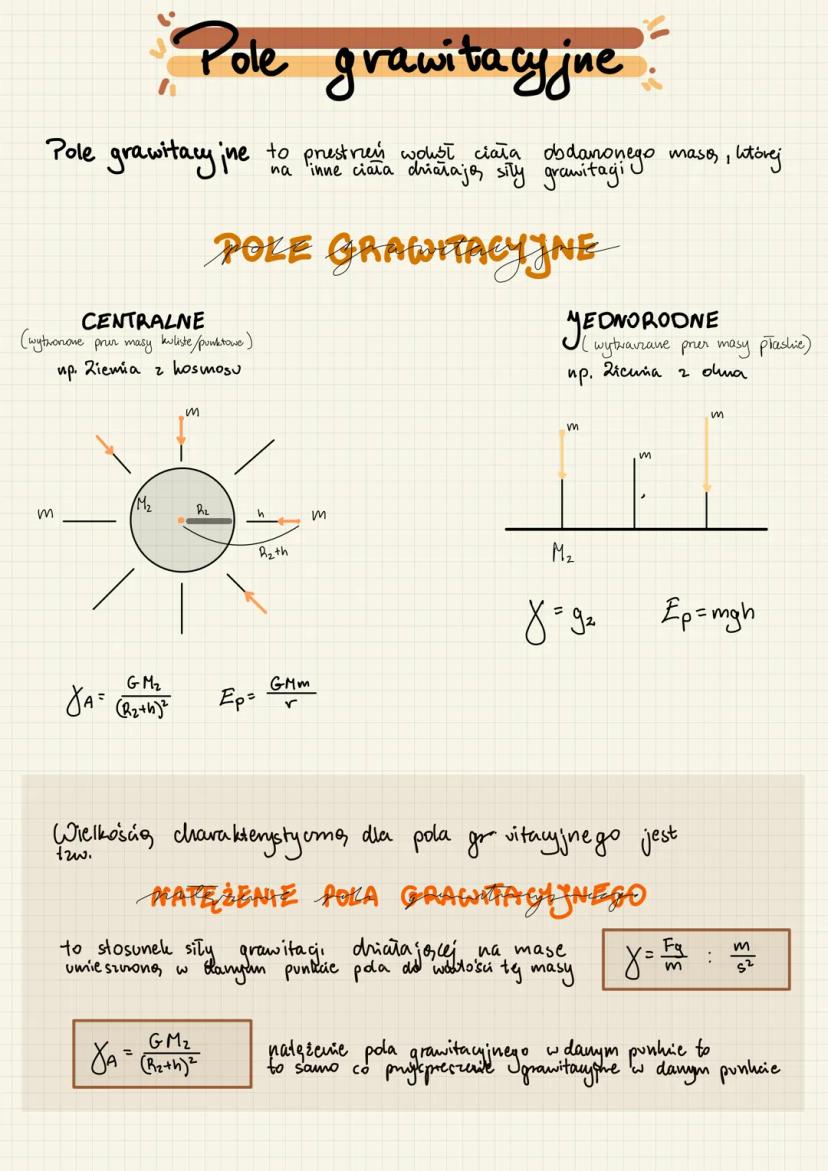 Pole grawitacyjne
Pole grawitacyjne to przestrzeń wokół ciała obdarzonego masą, której
na inne ciała działają siły grawitacji
POLE GRAWITACYJNE
CENTRALNE
(wytworzone przez masy kuliste/punktowe)
np. Ziemia z kosmosu
JEDNORODNE
(wytwarzane przez masy płaskie)
np. Ziemia z okna
m
m
M_Z
R_Z
h
m
R_Z+h
m
m
m
M_Z
γ = g_Z
E_p = mgh
γ_A = GM_Z/(R_Z+h)²
E_p = GMm/r
Wielkością charakterystyczną dla pola gr witacyjnego jest
tzw.
NATĘŻENIE POLA GRAWITACYJNEGO
to stosunek siły grawitacji działającej na masę
umieszczoną w danym punkcie pola do wartości tej masy
γ = Fg/m : m/s²
γ_A = GM_Z/(R_Z+h)²
natężenie pola grawitacyjnego w danym punkcie to
to samo co przyspieszenie grawitacyjne w danym punkcie